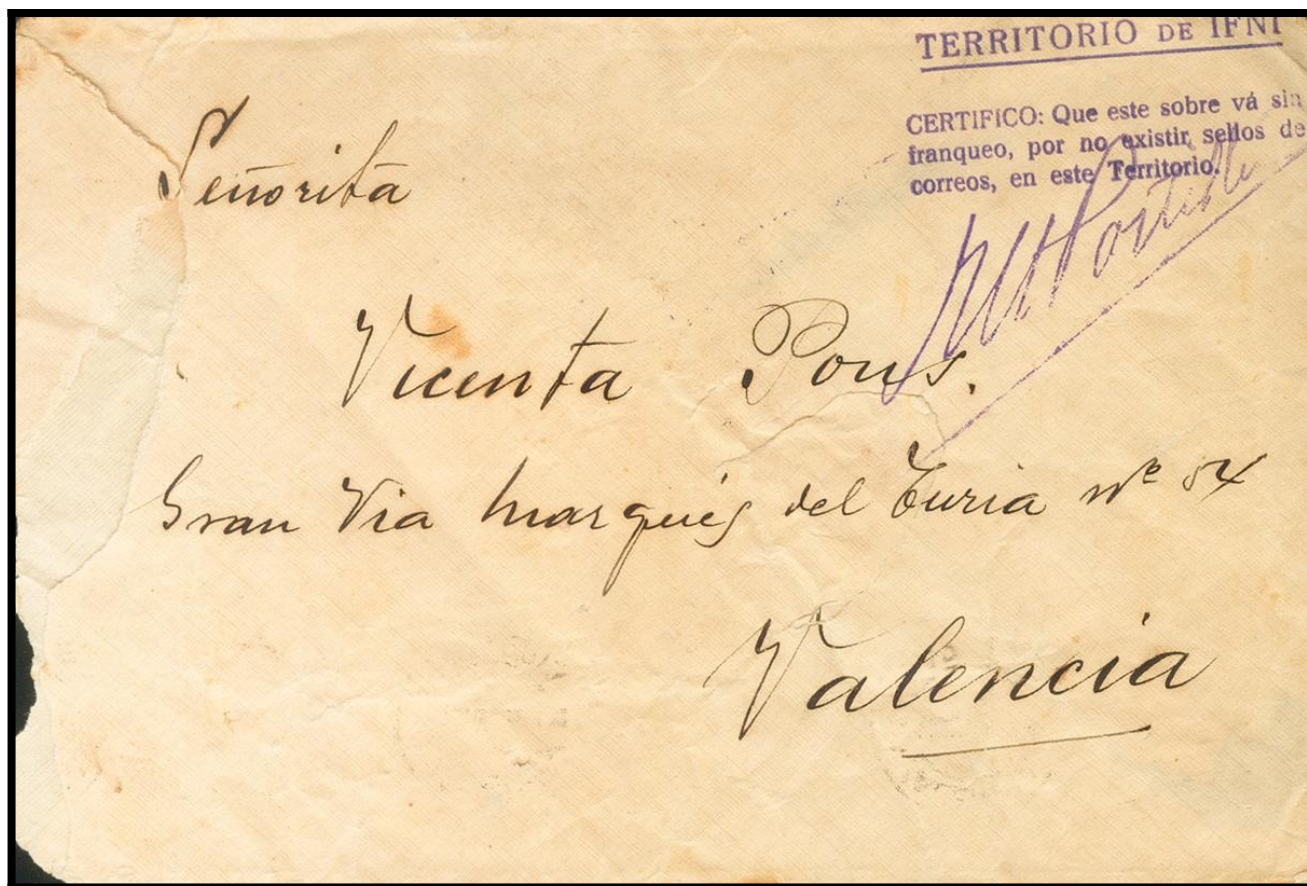 TERRITORIO DE IFNI
CERTIFICO: Que este sobre vá sin
franqueo, por no existir, sellos de
correos, en este Territorio.
Señorita
Vicenta Pons.
Gran Via Marqués del Turia nº 54
Valencia